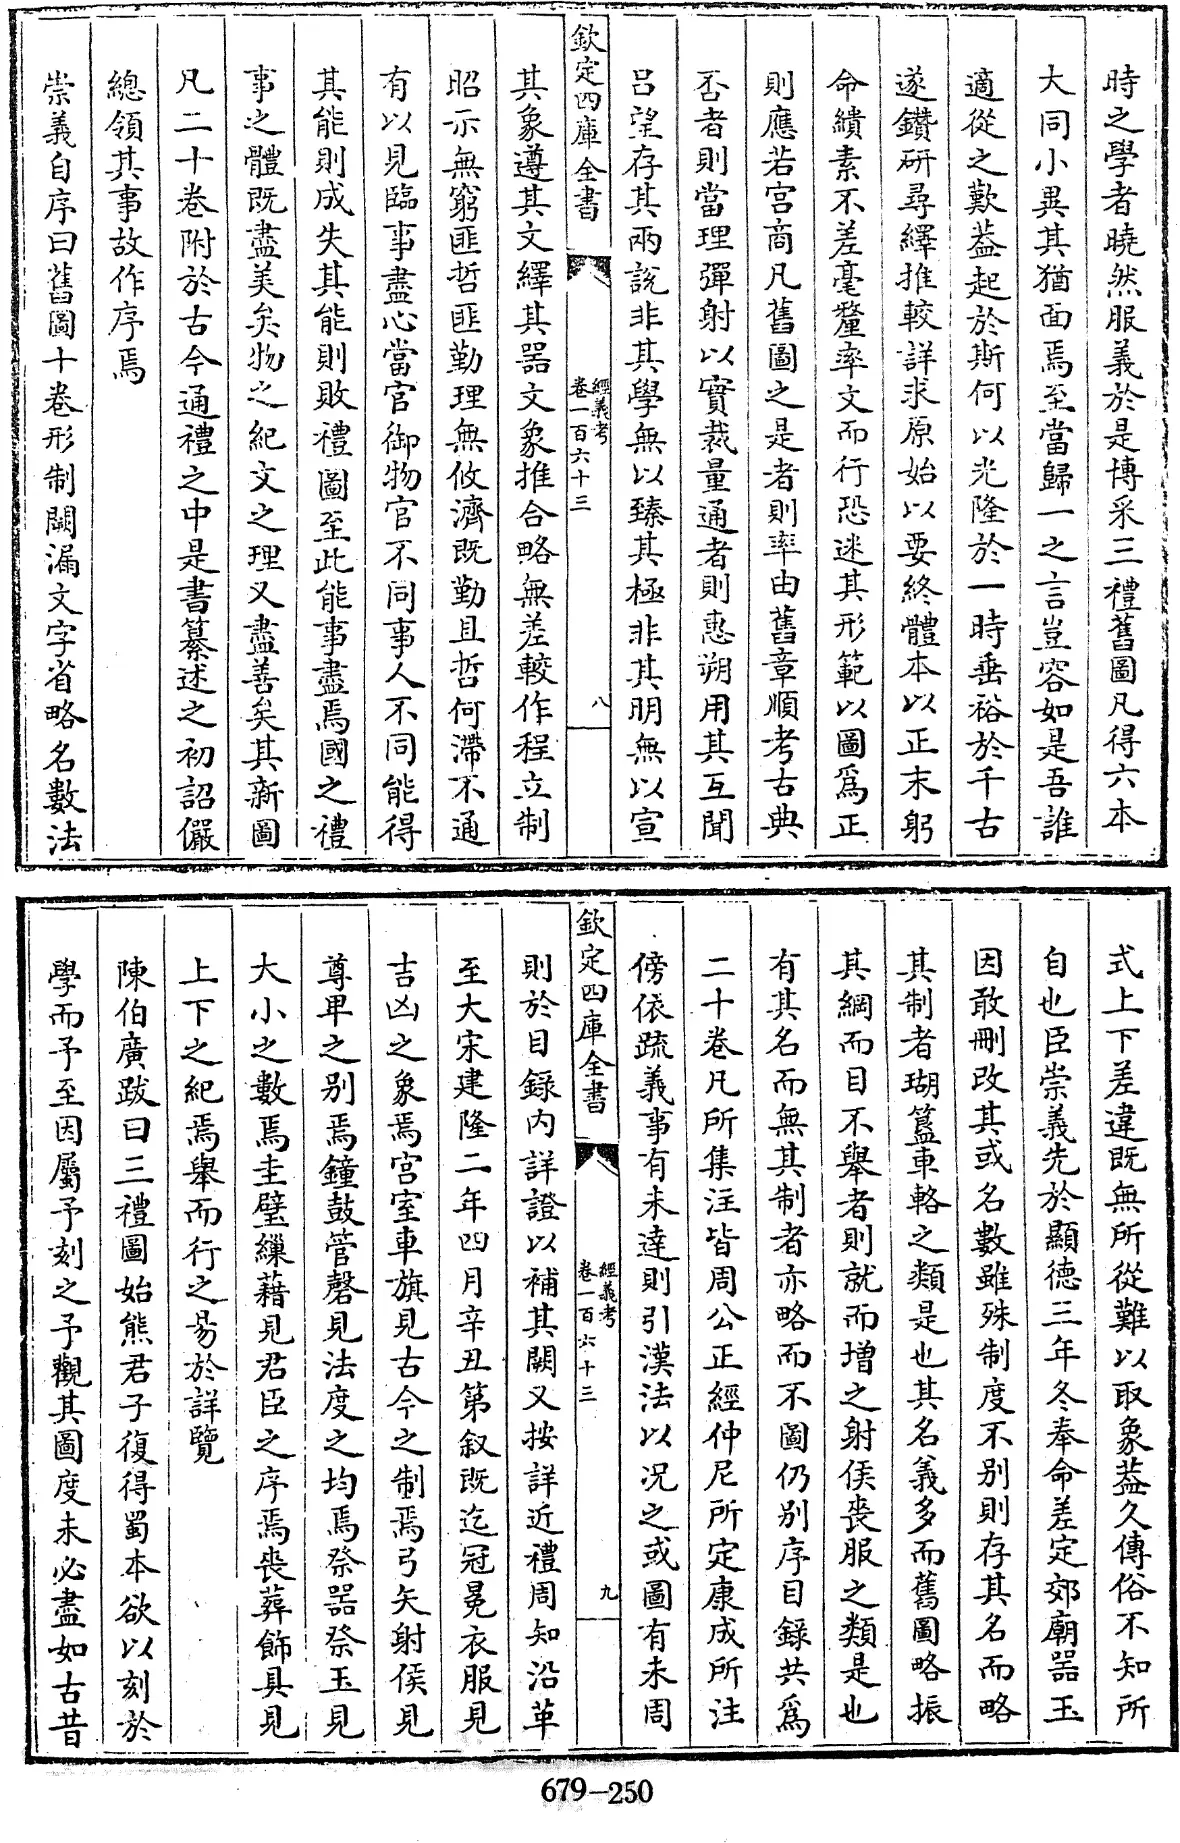 時之學者曉然服義於是博采三禮舊圖凡得六本
大同小異其猶面焉至當歸一之言豈容如是吾誰
適從之歎葢起於斯何以光隆於一時垂裕於千古
遂鑽研尋繹推較詳求原始以要終體本以正末躬
命繢素不差毫釐率文而行恐迷其形範以圖爲正
則應若宮商凡舊圖之是者則率由舊章順考古典
否者則當理彈射以實裁量通者則惠朔用其互聞
呂望存其兩說非其學無以臻其極非其明無以宣
欽定四庫全書
經義考
卷一百六十三
八
其象遵其文繹其器文象推合略無差較作程立制
昭示無窮匪哲匪勤理無攸濟既勤且哲何滯不通
有以見臨事盡心當官御物官不同事人不同能得
其能則成失其能則敗禮圖至此能事盡焉國之禮
事之體既盡美矣物之紀文之理又盡善矣其新圖
凡二十卷附於古今通禮之中是書纂述之初詔儼
總領其事故作序焉
崇義自序曰舊圖十卷形制闕漏文字省略名數法
式上下差違既無所從難以取象葢久傳俗不知所
自也臣崇義先於顯德三年冬奉命差定郊廟器玉
因敢刪改其或名數雖殊制度不别則存其名而略
其制者瑚簋車輅之類是也其名義多而舊圖略振
其綱而目不舉者則就而增之射侯喪服之類是也
有其名而無其制者亦略而不圖仍别序目錄共爲
二十卷凡所集注皆周公正經仲尼所定康成所注
傍依疏義事有未達則引漢法以况之或圖有未周
欽定四庫全書
經義考
卷一百六十三
九
則於目錄内詳證以補其闕又按詳近禮周知沿革
至大宋建隆二年四月辛丑第叙既迄冠冕衣服見
吉凶之象焉宮室車旗見古今之制焉弓矢射侯見
尊卑之别焉鐘鼓管磬見法度之均焉祭器祭玉見
大小之數焉圭璧繅藉見君臣之序焉喪葬飾具見
上下之紀焉舉而行之易於詳覽
陳伯廣跋曰三禮圖始熊君子復得蜀本欲以刻於
學而予至因屬予刻之予觀其圖度未必盡如古昔
679-250